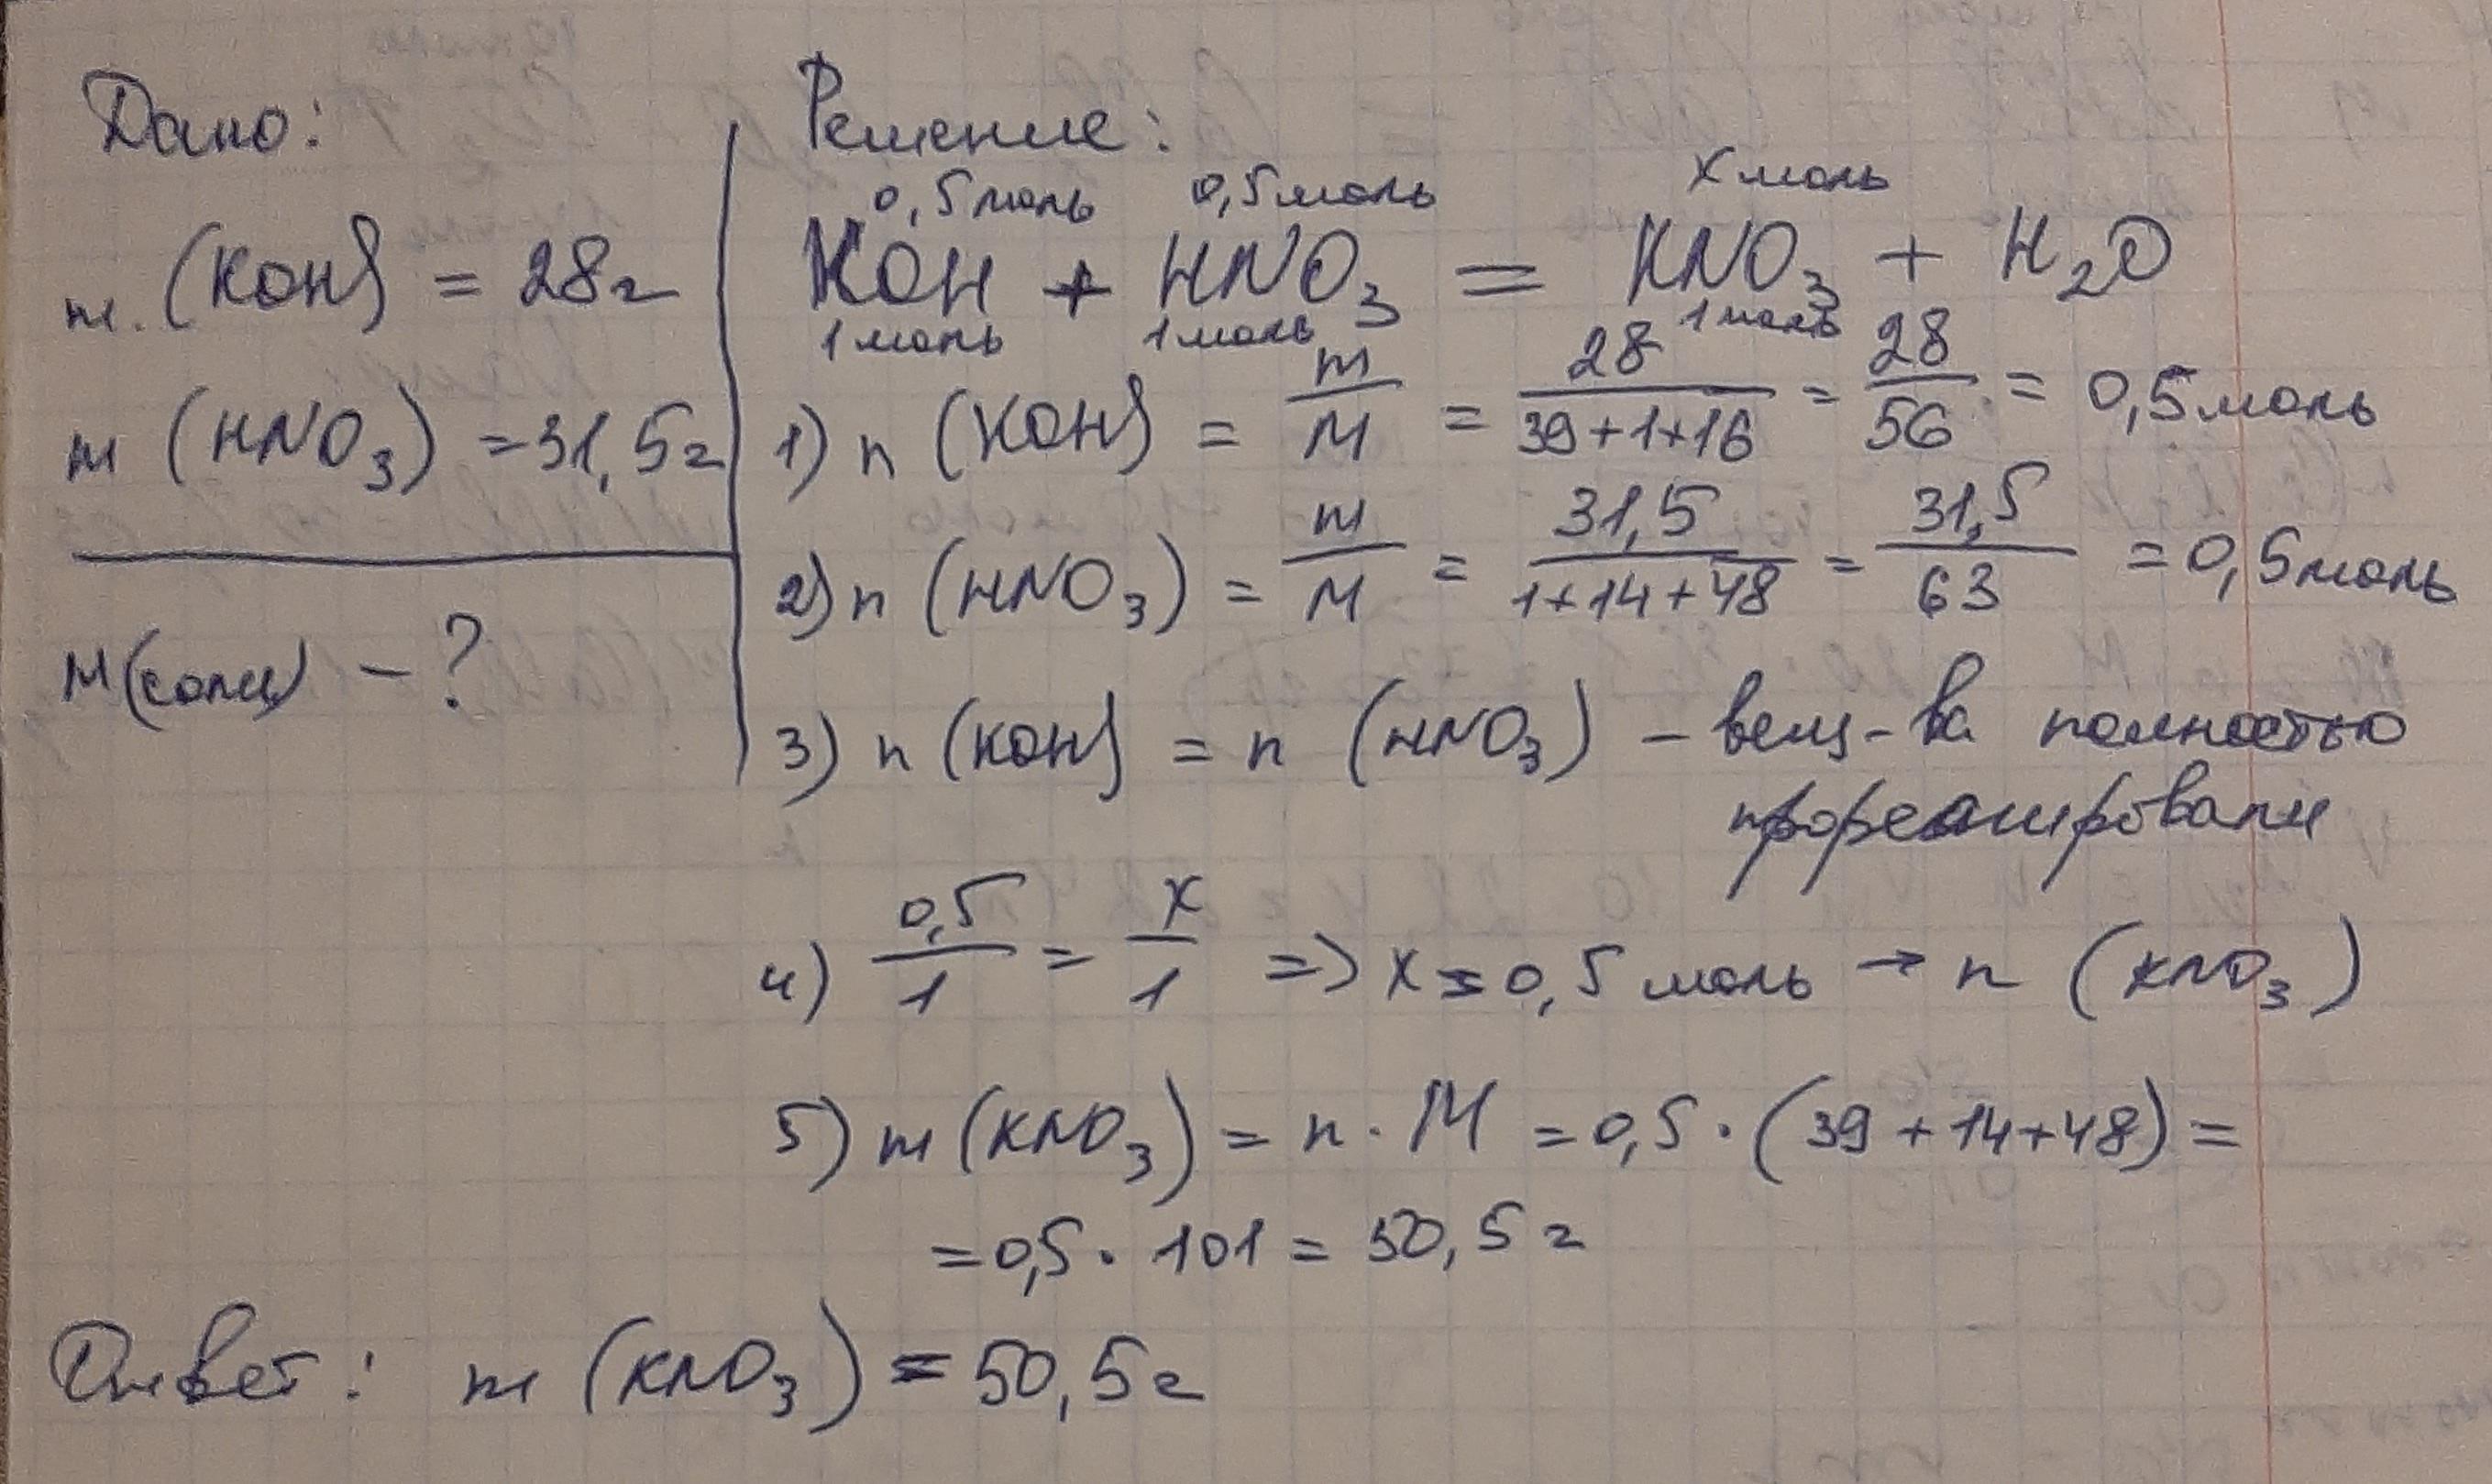 Дано:
m.(KOH) = 28г
m (HNO₃) = 31,5г
M(соли) - ?
Решение:
0,5моль 0,5моль x моль
KOH + HNO₃ = KNO₃ + H₂O
1моль 1моль 1моль
1) n (KOH) = m/M = 28/(39+1+16) = 28/56 = 0,5моль
2) n (HNO₃) = m/M = 31,5/(1+14+48) = 31,5/63 = 0,5моль
3) n (KOH) = n (HNO₃) - вещ-ва полностью
прореагировали
4) 0,5/1 = x/1 => x = 0,5 моль → n (KNO₃)
5) m (KNO₃) = n · M = 0,5 · (39 + 14+48) =
= 0,5 · 101 = 50,5 г
Ответ: m (KNO₃) = 50,5г